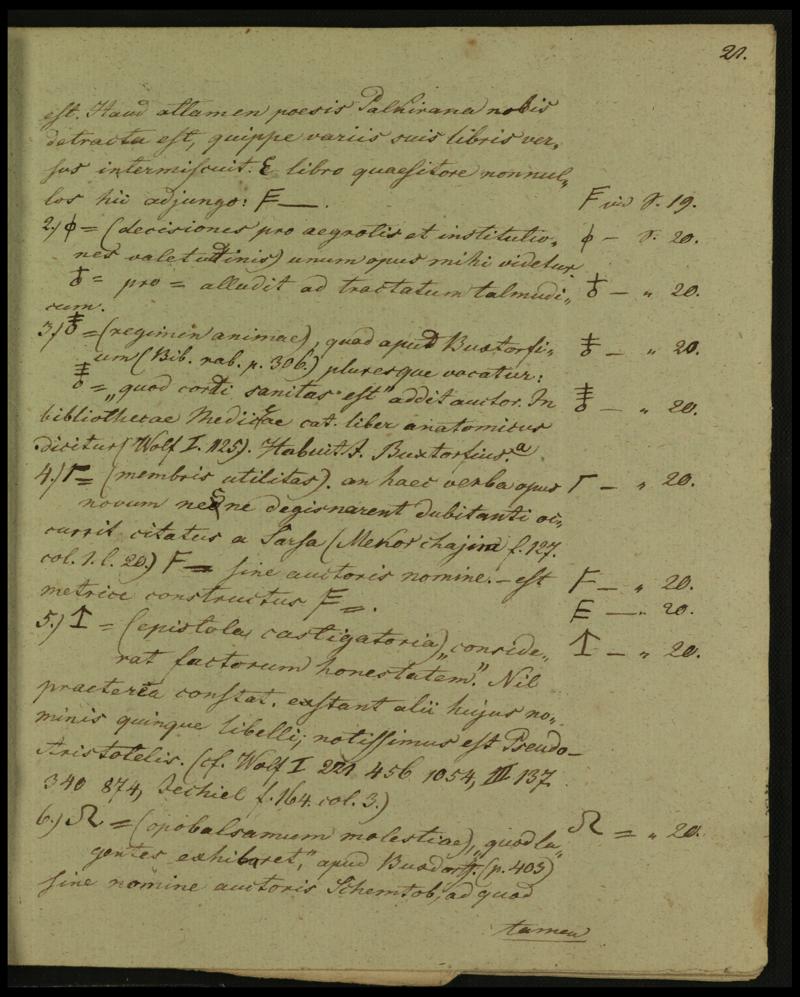 21.
est. Haud attamen poesis Palkirana nobis
detracta est, quippe variis suis libris ver,
sus intermiscuit. E libro quaesitore nonnul,
los hii adjungo: F —. F vid S. 19.
2.) ϕ = (decisiones pro aegrotis et institutio, ϕ — S. 20.
nes valetudinis) unum opus mihi videtur.
♁ = pro = alludit ad tractatum talmudi, ♁ — " 20.
cum.
3.) = (regimen animae), quod apud Buxtorfi, — " 20.
um (Bib. rab. p. 306.) pluresque vocatur:
= „quod cordi sanitas est" addit auctor. In — " 20.
bibliothecae Mediceae cat. liber anatomicus
dicitur (Wolf I. 1125). Habuit J. Buxtorfius.a
4.) Γ = (membris utilitas). an haec verba opus Γ — " 20.
novum nec ne designarent dubitanti oc,
currit citatus a Sarsa (Mekor chajim f. 127.
col. 1. l. 20.) F = sine auctoris nomine. — est F — " 20.
metrice constructus E =. E — " 20.
5.) ↥ = (epistola castigatoria) „conside, ↥ — " 20.
rat factorum honestatem". Nil
praeterea constat. exstant alii hujus no,
minis quinque libelli; notissimus est Pseudo-
Aristotelis. (cf. Wolf I 221 456 1054, III 137
340 874, Jechiel f. 164. col. 3.)
6.) ᘯ = (opobalsamum molestiae), „quod lu, ᘯ = " 20.
gentes exhilaret," apud Buxdorff. (p. 403)
sine nomine auctoris Schemtob, ad quod
tamen